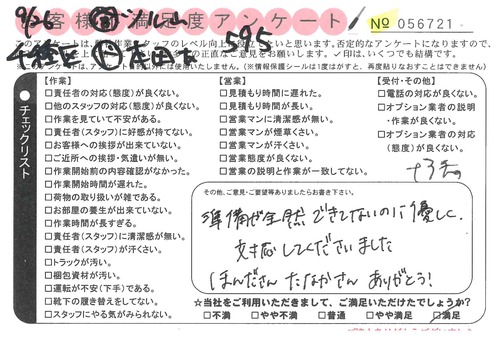 お客様満足度アンケート
№ 056721
9/26
595
【作業】
□責任者の対応(態度)が良くない。
□他のスタッフの対応(態度)が良くない。
□作業を見ていて不安がある。
□責任者(スタッフ)に好感が持てない。
□お客様への挨拶が出来ていない。
□ご近所への挨拶・気遣いが無い。
□作業開始前の内容確認がなかった。
□作業開始時間が遅れた。
□荷物の取り扱いが雑である。
□お部屋の養生が出来ていない。
□作業時間が長すぎる。
□責任者(スタッフ)に清潔感が無い。
□責任者(スタッフ)が汗くさい。
□トラックが汚い。
□梱包資材が汚い。
□運転が不安(下手)である。
□靴下の履き替えをしてない。
□スタッフにやる気がみられない。
【営業】
□見積もり時間に遅れた。
□見積もり時間が長い。
□営業マンに清潔感が無い。
□営業マンが煙草くさい。
□営業マンが汗くさい。
□営業態度が良くない。
□営業の説明と作業が一致してない。
【受付・その他】
□電話の対応が良くない。
□オプション業者の説明
・作業が良くない。
□オプション業者の対応
(態度)が良くない。
チェックリスト
その他、ご意見・ご要望等ありましたらお書き下さい。
準備が全然できてないのに優しく
対応してくださいました
ほんださん たなかさん ありがとう!
☆当社をご利用いただきまして、ご満足いただけたでしょうか?
□不満 □やや不満 □普通 □やや満足 □満足